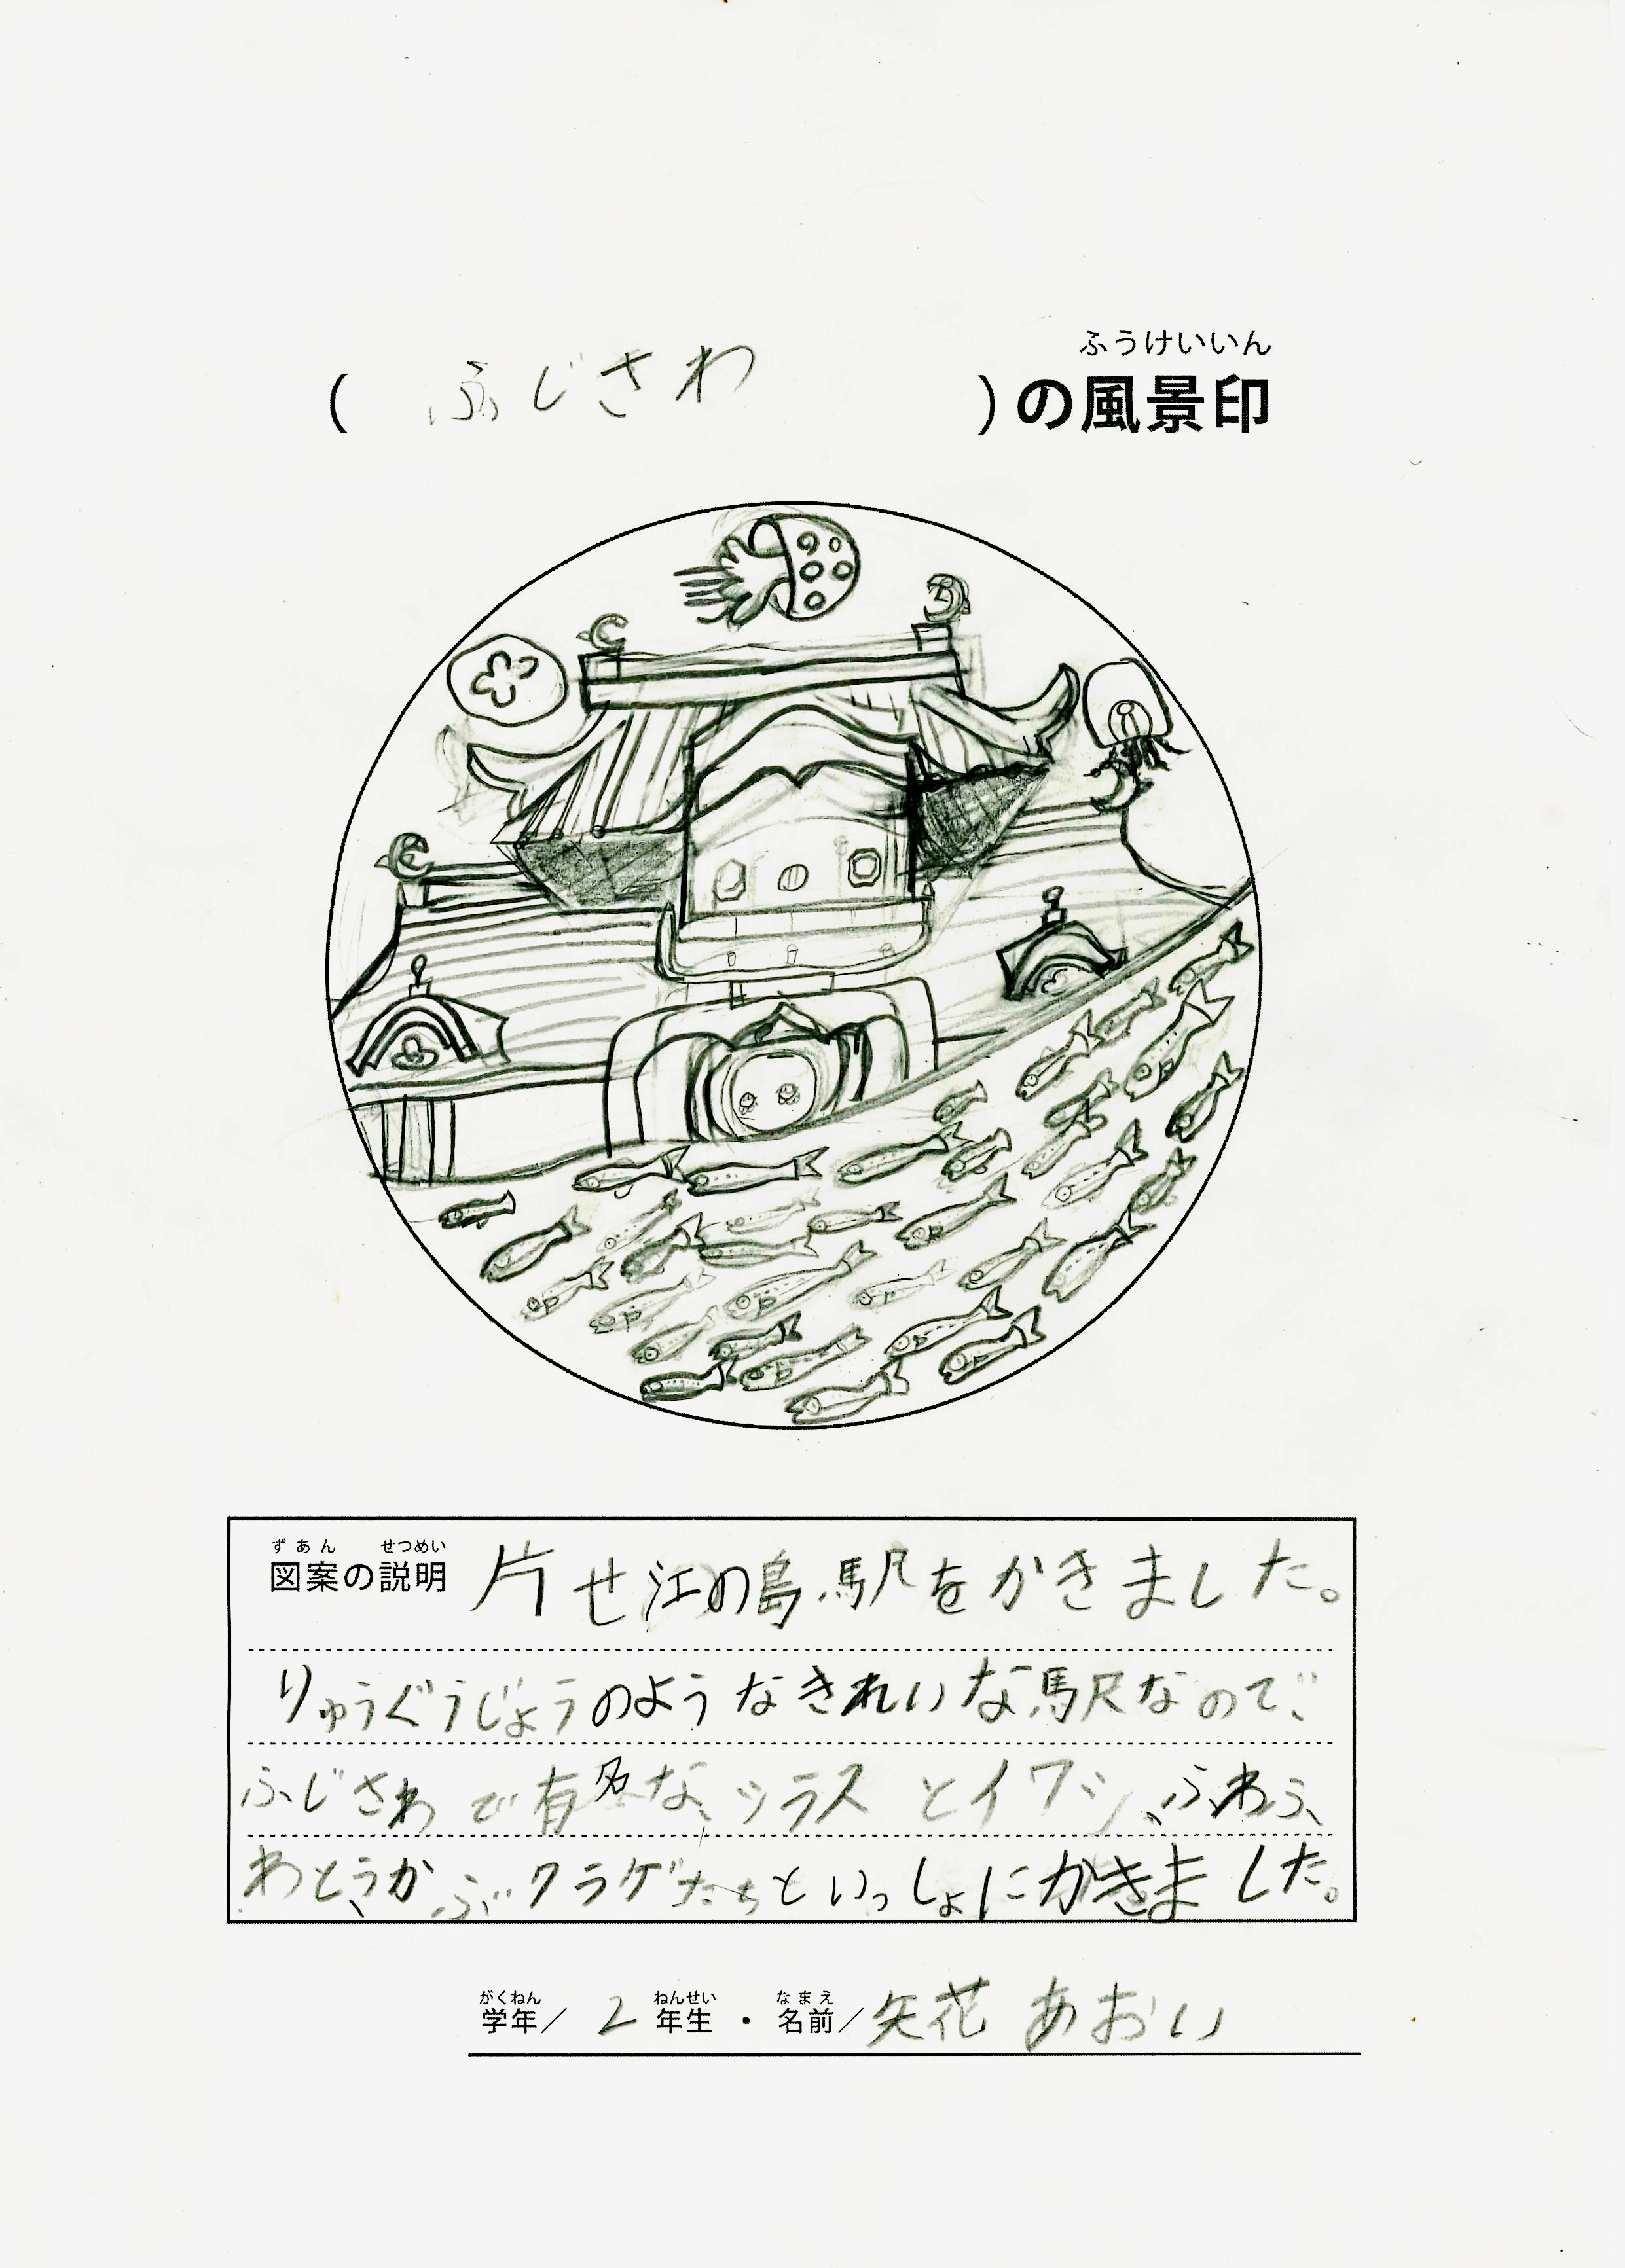 ふうけいいん
( ふじさわ )の風景印
ずあん せつめい
図案の説明 片せ江の島駅をかきました。
りゅうぐうじょうのようなきれいな駅なので、
ふじさわで有名な、シラスとイワシ、ふわふ
わとうかぶクラゲたちといっしょにかきました。
がくねん ねんせい なまえ
学年/ 2 年生・名前/矢花 あおい